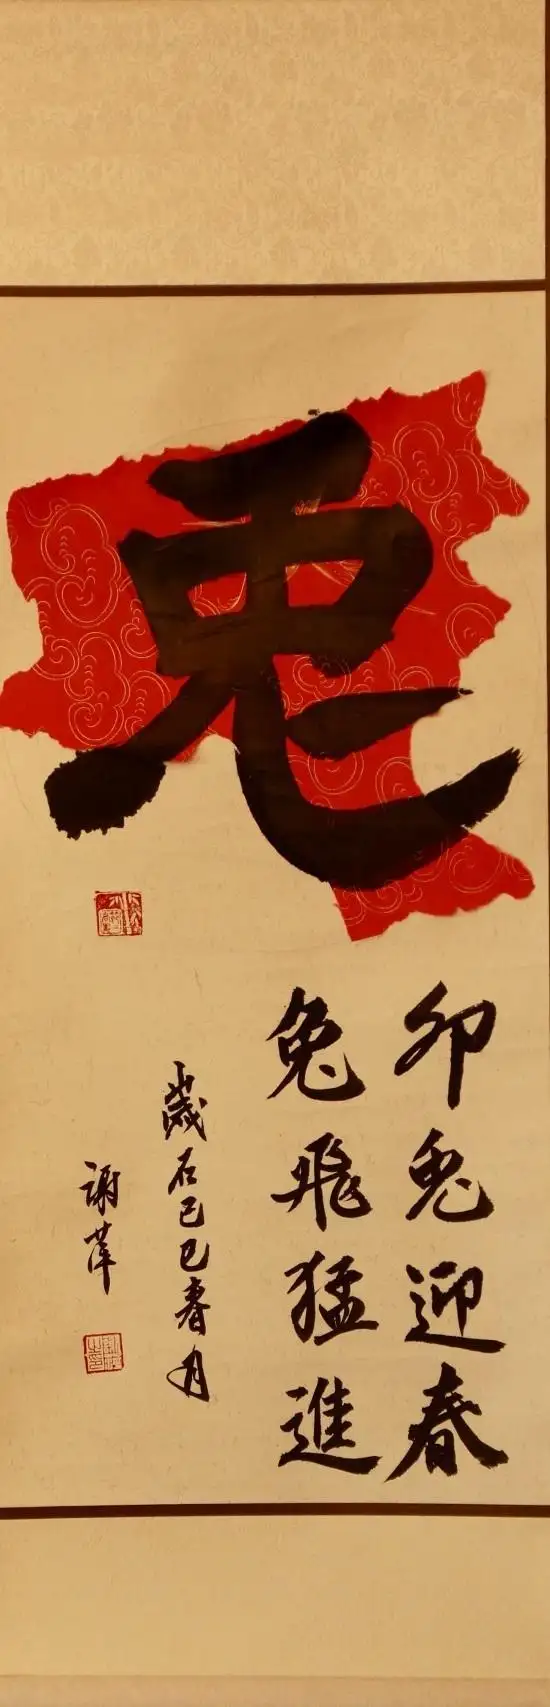 兔
卯兔迎春
兔飛猛進
歲在己巳春月
謝萍